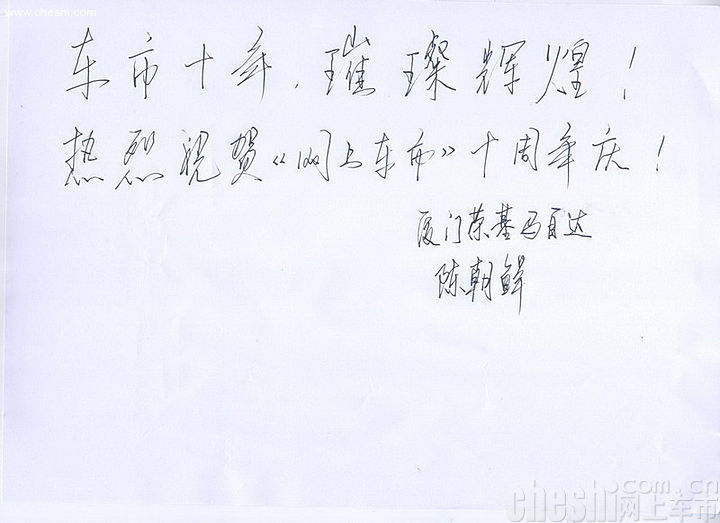 www.cheshi.com
车市十年，璀璨辉煌！
热烈祝贺《网上车市》十周年庆！
厦门荣基马自达
陈朝鲜
cheshi.com.cn
网上车市